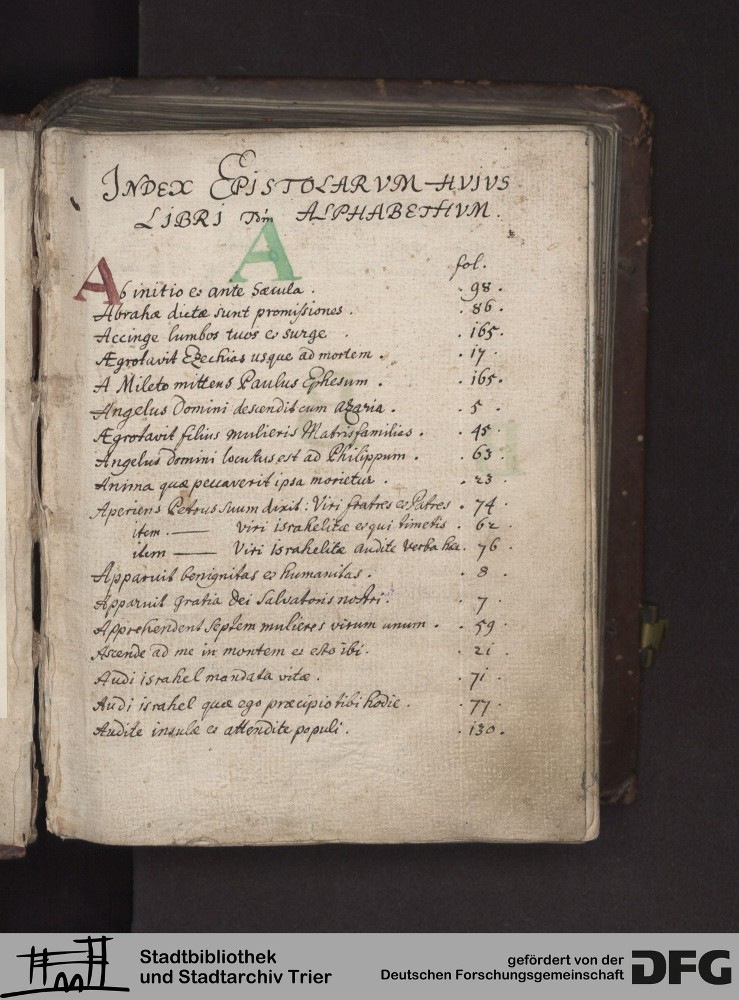 INDEX EPISTOLARVM HVIVS
LIBRI ALPHABETHVM.
A
fol.
Ab initio et ante Sæcula . 98 .
Abrahæ dictæ sunt promissiones . 86 .
Accinge lumbos tuos et surge . 165 .
Ægrotavit Ezechias usque ad mortem . 17 .
A Mileto mittens Paulus Ephesum . 165 .
Angelus Domini descendit cum Azaria . 5 .
Ægrotavit filius mulieris Matrisfamilias . 45 .
Angelus Domini locutus est ad Philippum . 63 .
Anima quæ peccaverit ipsa morietur . 23 .
Aperiens Petrus suum dixit: Viri fratres et Patres . 74 .
item . — Viri israhelitæ et qui timetis . 62 .
item — Viri israhelitæ audite verba hæc . 76 .
Apparuit benignitas et humanitas . 8 .
Apparuit gratia Dei Salvatoris nostri . 7 .
Apprehendent Septem mulieres virum unum . 59 .
Ascende ad me in montem et esto ibi . 21 .
Audi israhel mandata vitæ . 71 .
Audi israhel quæ ego præcipio tibi hodie . 77 .
Audite insulæ et attendite populi . 130 .
Stadtbibliothek
und Stadtarchiv Trier
gefördert von der
Deutschen Forschungsgemeinschaft
DFG